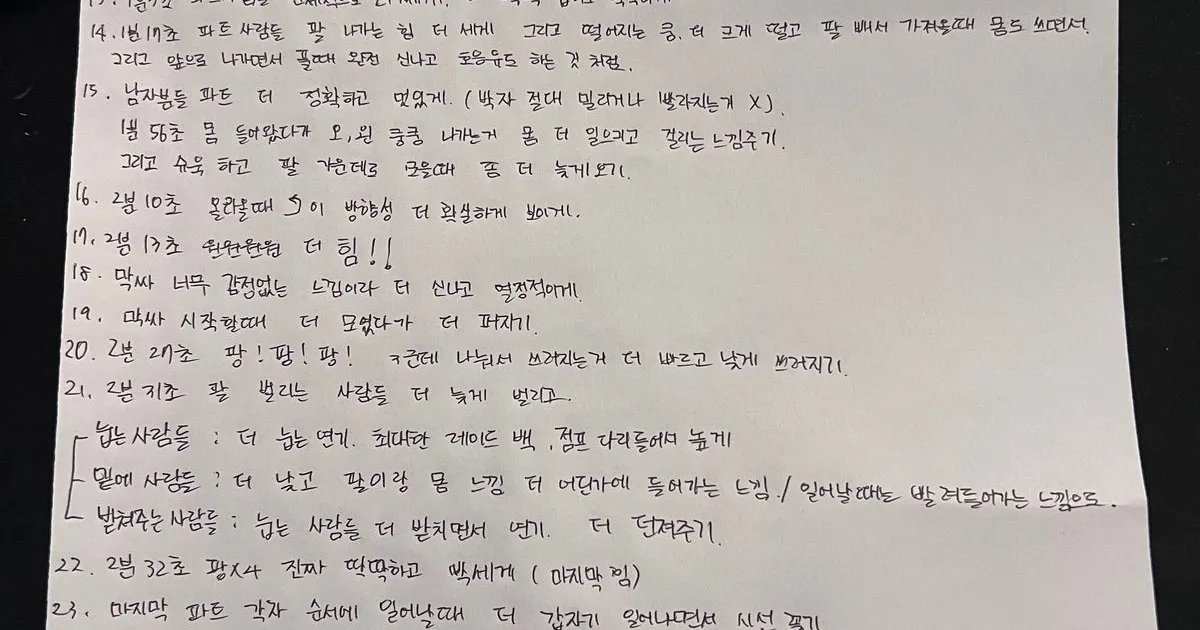 14. 1분 17초 파트 사람들 팔 나가는 힘 더 세게 그리고 떨어지는 쿵, 더 크게 떨고 팔 빼서 가져올때 몸도 쓰면서.
그리고 앞으로 나가면서 풀때 완전 신나고 호응유도 하는 것 처럼.
15. 남자분들 파트 더 정확하고 멋있게. (박자 절대 밀리거나 빨라지는거 X).
1분 56초 몸 들어왔다가 오, 왼 쿵쿵 나가는거 몸 더 일으키고 걸리는 느낌주기.
그리고 슈욱 하고 팔 가운데로 모을때 좀 더 늦게오기.
16. 2분 10초 올라올때 이 방향성 더 확실하게 보이게.
17. 2분 13초 더 힘!!
18. 막싸 너무 감정없는 느낌이라 더 신나고 열정적이게.
19. 막싸 시작할때 더 모였다가 더 퍼지기.
20. 2분 27초 팡! 팡! 팡! 3군데 나눠서 쓰러지는거 더 빠르고 낮게 쓰러지기.
21. 2분 31초 팔 벌리는 사람들 더 늦게 벌리고.
눕는 사람들 : 더 눕는 연기. 최대한 레이드 백, 점프 다리들어서 높게
밑에 사람들 : 더 낮고 팔이랑 몸 느낌 더 어딘가에 들어가는 느낌. / 일어날때는 빨려들어가는 느낌으로.
받쳐주는 사람들 : 눕는 사람들 더 받치면서 연기. 더 던져주기.
22. 2분 32초 팡X4 진짜 딱딱하고 빡세게 (마지막 힘)
23. 마지막 파트 각자 순서에 일어날때 더 갑자기 일어나면서 시선 꽂기